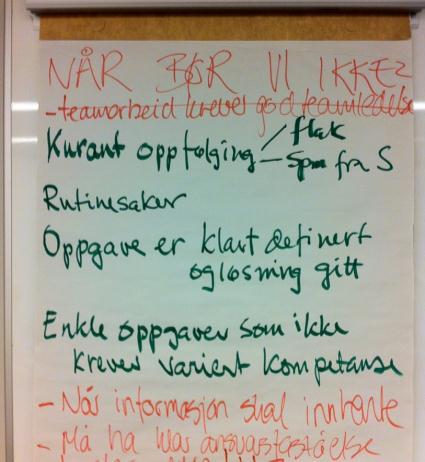 NÅR BØR VI IKKE?
-teamarbeid krever god teamledelse
Kurant oppfølging / flak
- Spm fra S
Rutinesaker
Oppgave er klart definert
og løsning gitt
Enkle oppgaver som ikke
krever variert kompetanse
- Når informasjon skal innhente
- Må ha klar ansvars